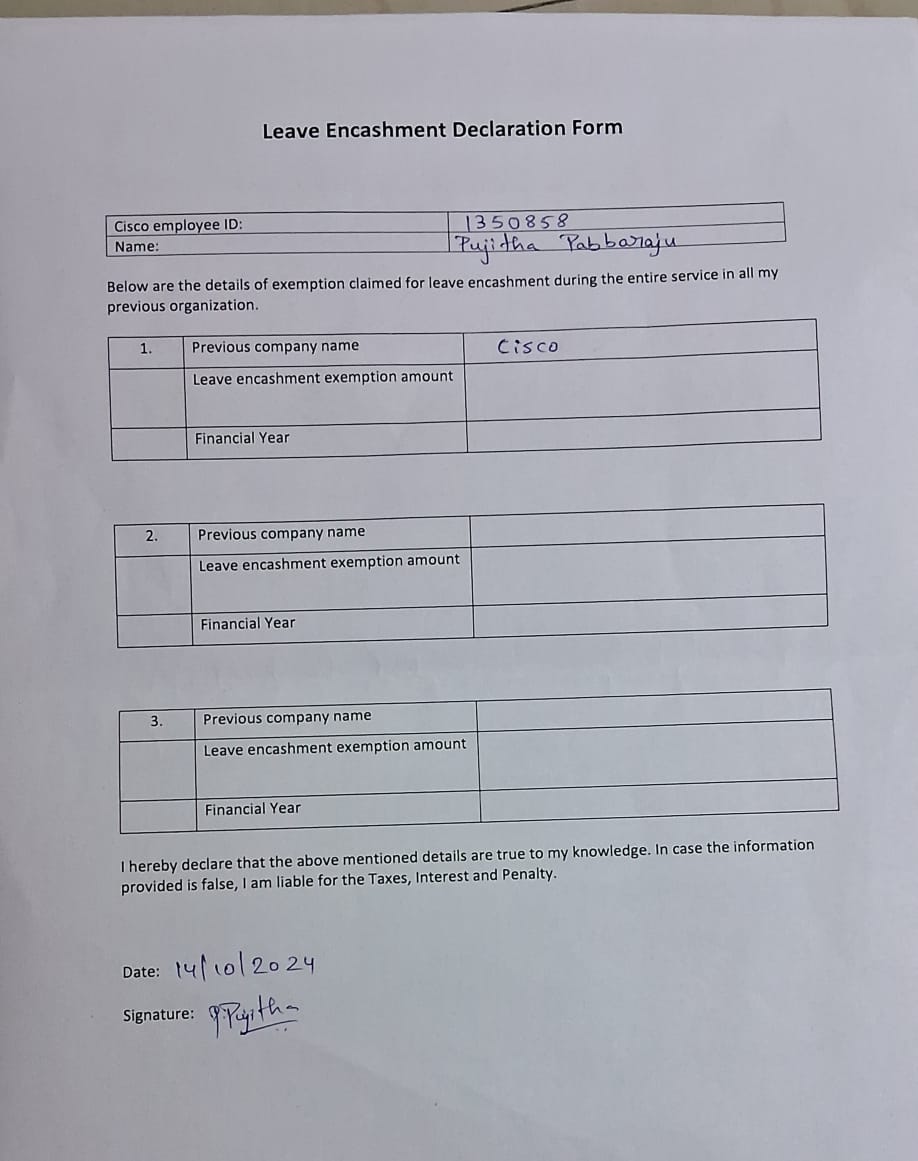 Leave Encashment Declaration Form
Cisco employee ID: 1350858
Name: Pujitha Pabbaraju
Below are the details of exemption claimed for leave encashment during the entire service in all my
previous organization.
1. Previous company name Cisco
Leave encashment exemption amount
Financial Year
2. Previous company name
Leave encashment exemption amount
Financial Year
3. Previous company name
Leave encashment exemption amount
Financial Year
I hereby declare that the above mentioned details are true to my knowledge. In case the information
provided is false, I am liable for the Taxes, Interest and Penalty.
Date: 14/10/2024
Signature: P.Pujitha